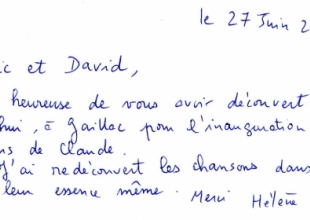 le 27 Juin 2
ic et David,
heureuse de vous avoir découvert
hui, à Gaillac pour l'inauguration
ns de Claude.
J'ai redécouvert les chansons dans
leur essence même. Merci Hélène